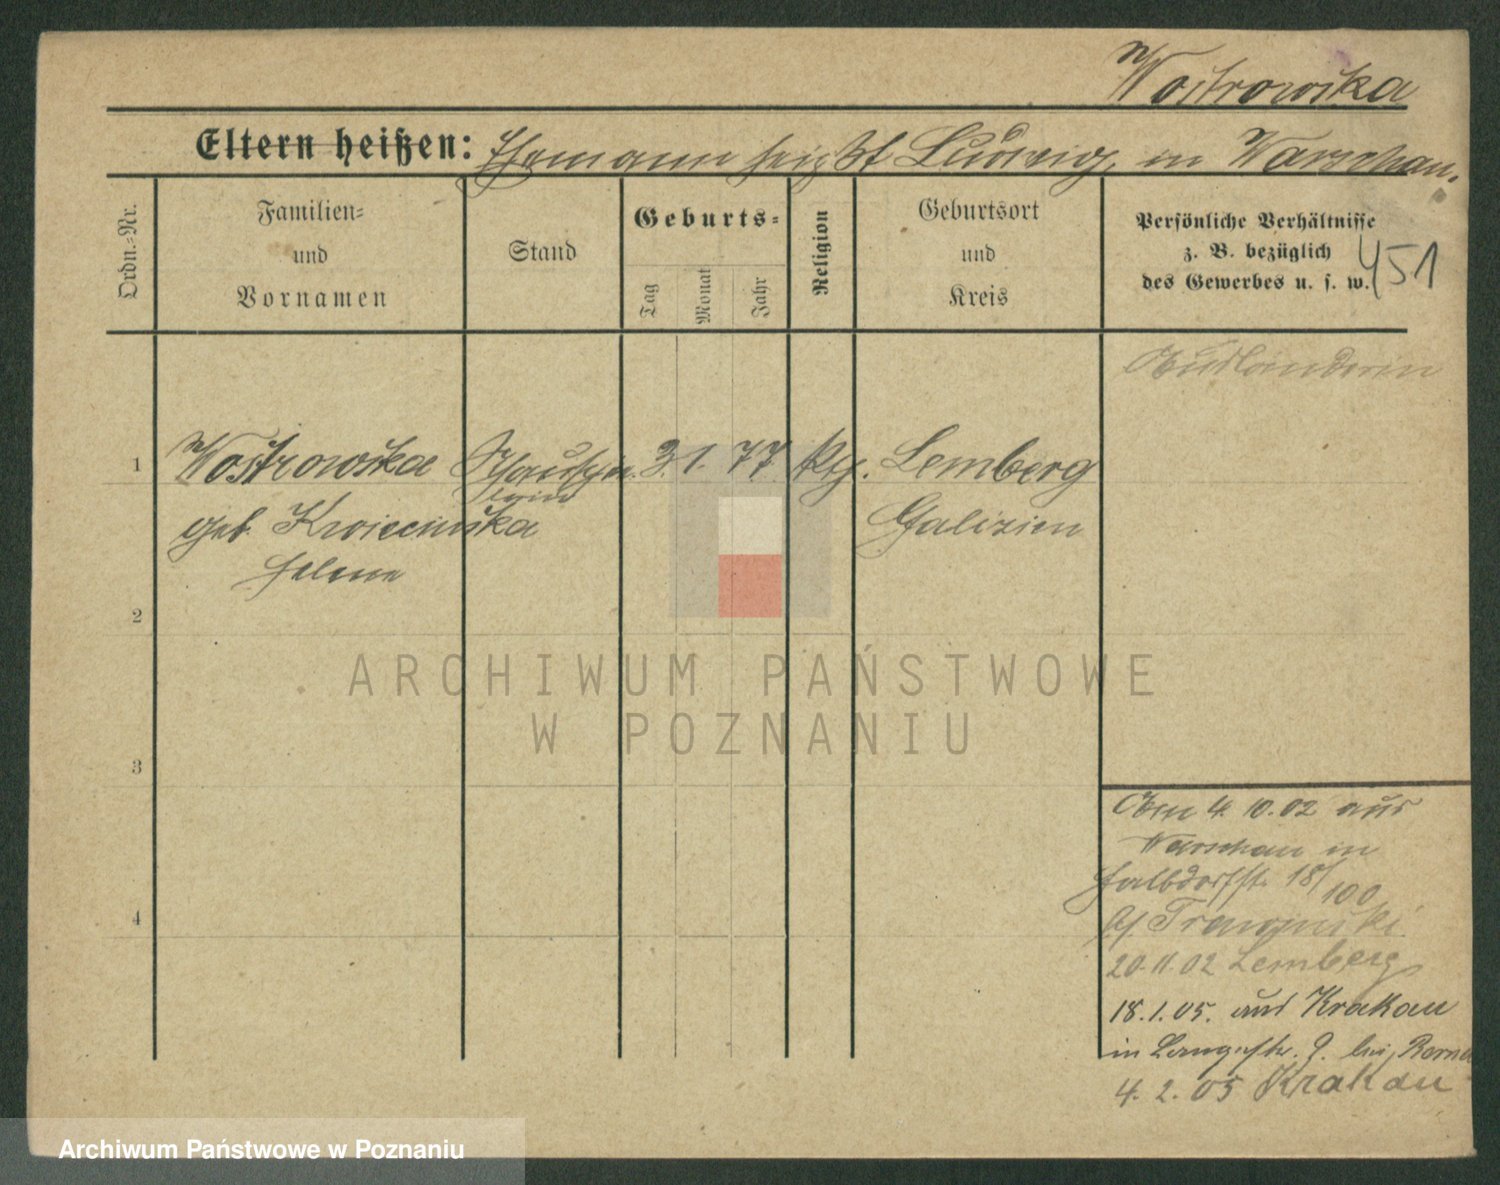 Wostrowska
Eltern heißen: Ehemann heißt Ludwig, in Warschau.
Ordn.-Nr.
Familien-
und
Vornamen
Stand
Geburts-
Tag
Monat
Jahr
Religion
Geburtsort
und
Kreis
Persönliche Verhältnisse
z. B. bezüglich
des Gewerbes u. s. w.
451
Ausländerin
1 Wostrowska Schauspie 3. 1. 77 kth. Lemberg
lerin
geb. Kwiecinska Galizien
Helene
2
3
4
Am 4. 10. 02 aus
Warschau in
Halbdorfstr. 18/100
b/
20.11.02 Lemberg
18.1.05. aus Krakau
in Langestr. 9. bei
4. 2. 05 Krakau
ARCHIWUM PAŃSTWOWE
W POZNANIU
Archiwum Państwowe w Poznaniu